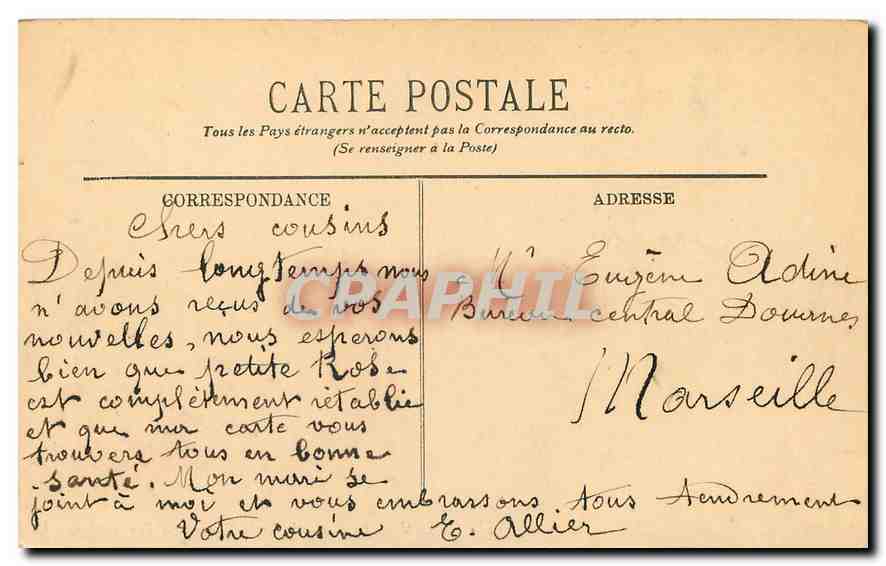 CARTE POSTALE
Tous les Pays étrangers n'acceptent pas la Correspondance au recto.
(Se renseigner à la Poste)
CORRESPONDANCE
Chers cousins
Depuis longtemps nous
n'avons reçus de vos
nouvelles, nous esperons
bien que petite Rose
est complètement rétablie
et que ma carte vous
trouvera tous en bonne
santé. Mon mari se
joint à moi et vous embrassons tous tendrement
Votre cousine E. Allier
ADRESSE
Mr Eugène Adine
Bureau central Douanes
Marseille
CPAPHIL